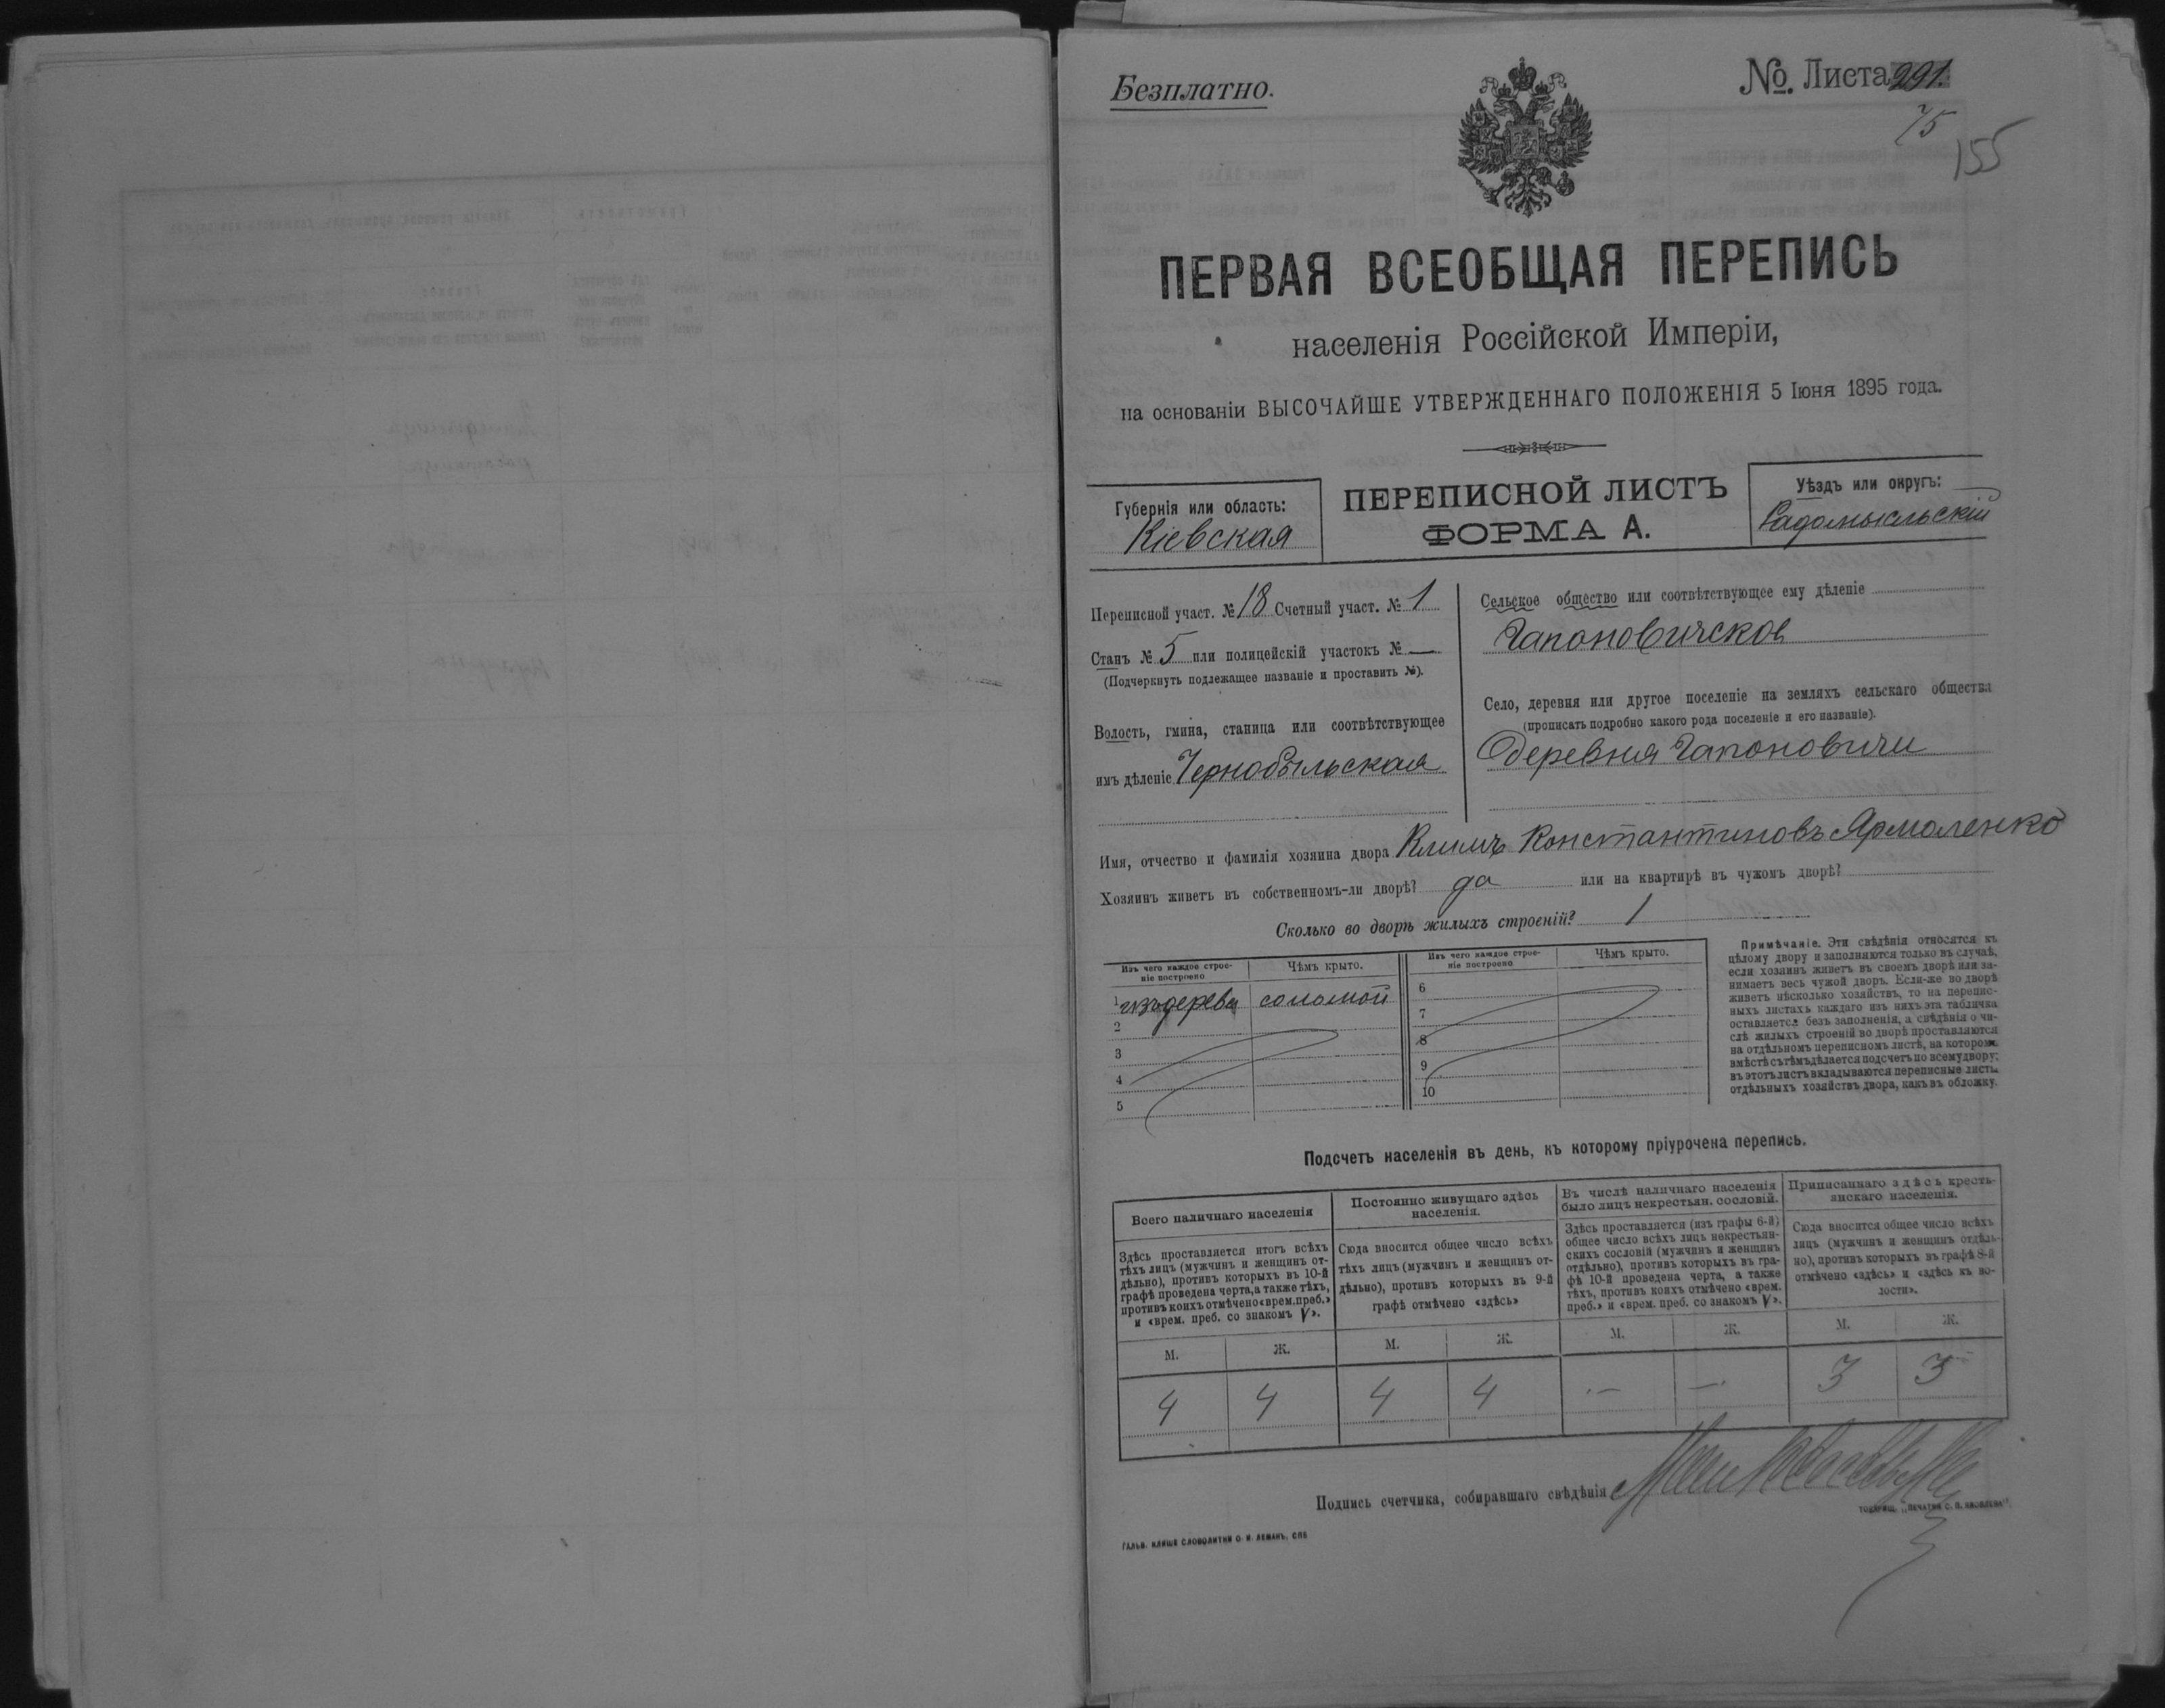 Безплатно.
№. Листа 291.
75
155
ПЕРВАЯ ВСЕОБЩАЯ ПЕРЕПИСЬ
населенія Россійской Имперіи,
на основаніи ВЫСОЧАЙШЕ УТВЕРЖДЕННАГО ПОЛОЖЕНІЯ 5 Іюня 1895 года.
Губернія или область:
Кіевская
ПЕРЕПИСНОЙ ЛИСТЪ
ФОРМА А.
Уѣздъ или округъ:
Радомысльскій
Переписной участ. № 18 Счетный участ. № 1
Станъ № 5 или полицейскій участокъ № —
(Подчеркнуть подлежащее названіе и проставить №).
Волость, гмина, станица или соотвѣтствующее
имъ дѣленіе Чернобыльская
Сельское общество или соотвѣтствующее ему дѣленіе
Гапоновичское
Село, деревня или другое поселеніе на земляхъ сельскаго общества
(прописать подробно какого рода поселеніе и его названіе).
Деревня Гапоновичи
Имя, отчество и фамилія хозяина двора Климъ Константиновъ Ярмоленко
Хозяинъ живетъ въ собственномъ-ли дворѣ? да или на квартирѣ въ чужомъ дворѣ?
Сколько во дворѣ жилыхъ строеній? 1
Изъ чего каждое строе-
ніе построено
Чѣмъ крыто.
1 изъ дерева соломой
2
3
4
5
Изъ чего каждое строе-
ніе построено
Чѣмъ крыто.
6
7
8
9
10
Примѣчаніе. Эти свѣдѣнія относятся къ
цѣлому двору и заполняются только въ случаѣ,
если хозяинъ живетъ въ своемъ дворѣ или за-
нимаетъ весь чужой дворъ. Если-же во дворѣ
живетъ нѣсколько хозяйствъ, то на перепис-
ныхъ листахъ каждаго изъ нихъ эта табличка
оставляется безъ заполненія, а свѣдѣнія о чи-
слѣ жилыхъ строеній во дворѣ проставляются
на отдѣльномъ переписномъ листѣ, на которомъ
вмѣстѣ съ тѣмъ дѣлается подсчетъ по всему двору;
въ этотъ листъ вкладываются переписные листы
отдѣльныхъ хозяйствъ двора, какъ въ обложку.
Подсчетъ населенія въ день, къ которому пріурочена перепись.
Всего наличнаго населенія
Здѣсь проставляется итогъ всѣхъ
тѣхъ лицъ (мужчинъ и женщинъ от-
дѣльно), противъ которыхъ въ 10-й
графѣ проведена черта, а также тѣхъ,
противъ коихъ отмѣчено «врем. преб.»
и «врем. преб. со знакомъ V».
М. Ж.
4 4
Постоянно живущаго здѣсь
населенія.
Сюда вносится общее число всѣхъ
тѣхъ лицъ (мужчинъ и женщинъ от-
дѣльно), противъ которыхъ въ 9-й
графѣ отмѣчено «здѣсь»
М. Ж.
4 4
Въ числѣ наличнаго населенія
было лицъ некрестьян. сословій.
Здѣсь проставляется (изъ графы 6-й)
общее число всѣхъ лицъ некрестьян-
скихъ сословій (мужчинъ и женщинъ
отдѣльно), противъ которыхъ въ гра-
фѣ 10-й проведена черта, а также
тѣхъ, противъ коихъ отмѣчено «врем.
преб.» и «врем. преб. со знакомъ V».
М. Ж.
— —
Приписаннаго здѣсь кресть-
янскаго населенія.
Сюда вносится общее число всѣхъ
лицъ (мужчинъ и женщинъ отдѣль-
но), противъ которыхъ въ графѣ 8-й
отмѣчено «здѣсь» и «здѣсь къ во-
лости».
М. Ж.
3 3
Подпись счетчика, собиравшаго свѣдѣнія
ТОВАРИЩ. „ПЕЧАТНЯ С. П. ЯКОВЛЕВА".
ГАЛЬВ. КЛИШЕ СЛОВОЛИТНИ О. И. ЛЕМАНЪ, СПБ